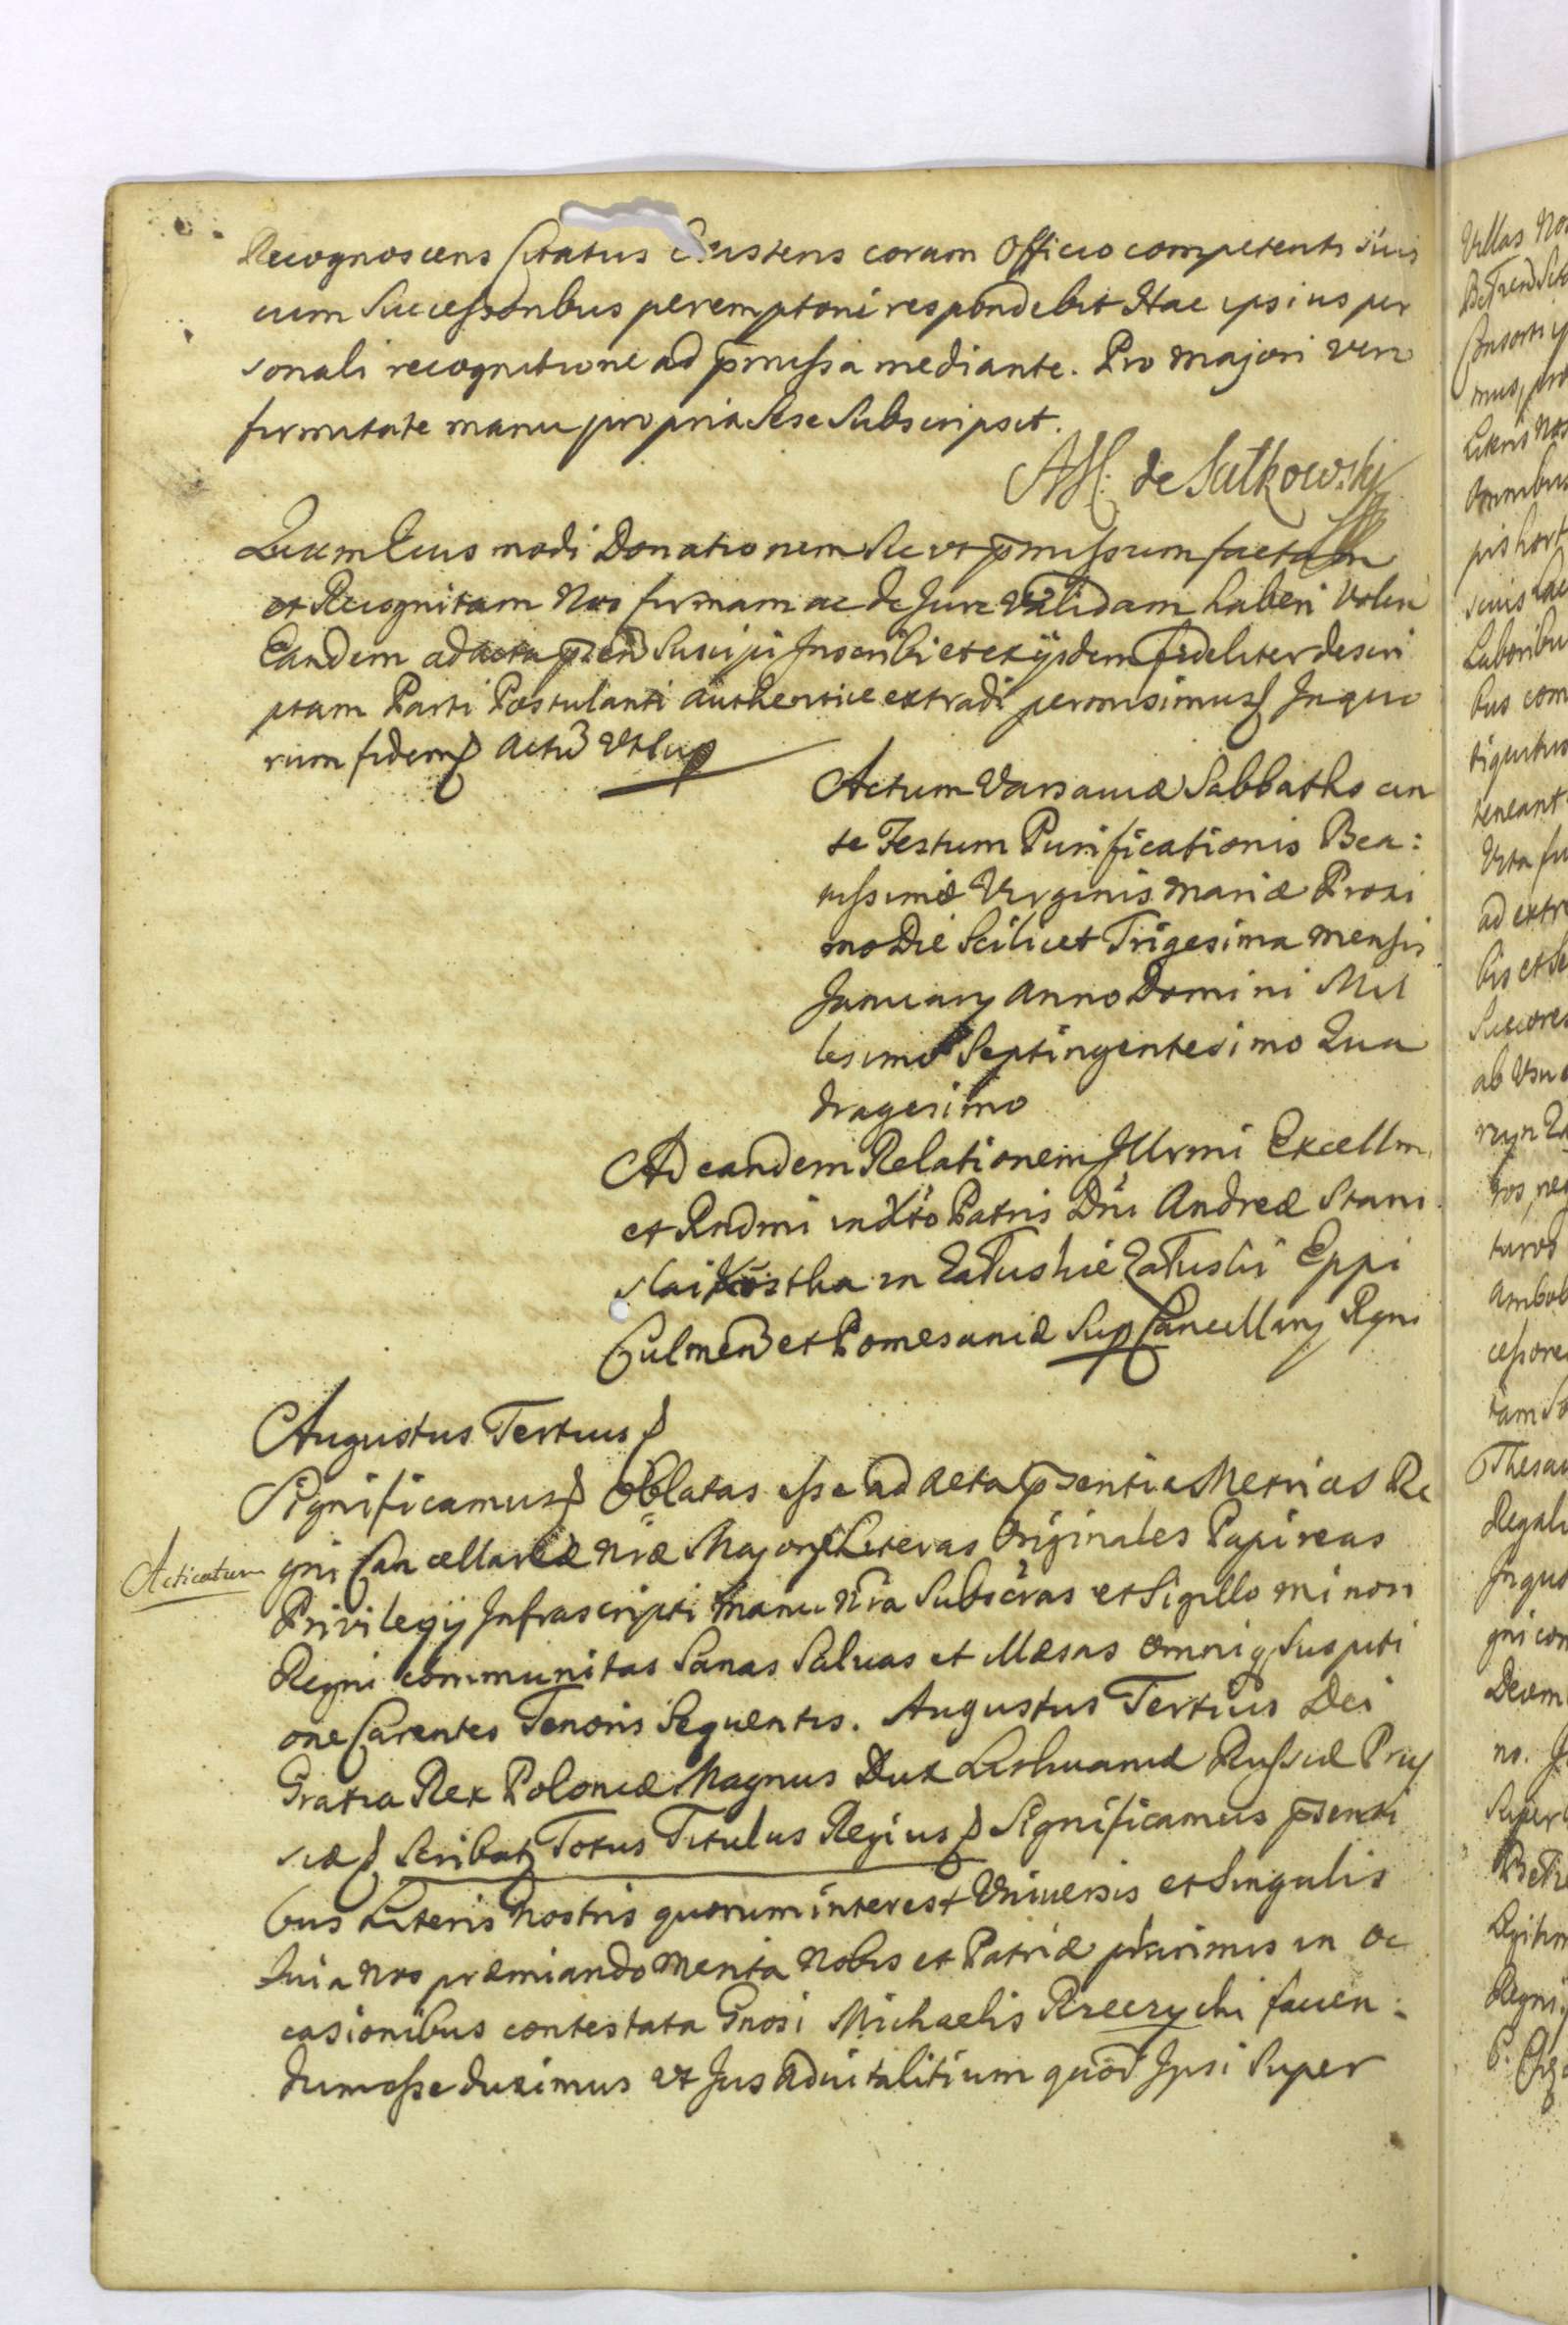 Recognoscens Citatus Existens coram Officio competenti suis
cum Successoribus peremptorie respondebit Hac ipsius per
sonali recognitione ad p̄missa mediante. Pro majori vero
firmitate manu propria Sese Subscripsit.
de Sułkowski
Quam Eius modi Donationem Sic ut p̄missum factam
et Recognitam Nos firmam ac de Jure Validam haberi Volen
Eandem ad acta p̄sen Suscipi Inscribi et ex ijsdem fideliter descri
ptam Parti Postulanti authentice extradi permisimus Inquo
rum fidem Actu Ut Sup
Actum Varsaviæ Sabbatho an
te Festum Purificationis Bea:
tissimæ Virginis Mariæ Proxi
mo Die Scilicet Trigesima Mensis
January Anno Domini Mil
lesimo Septingentesimo Qua
dragesimo
Ad eandem Relationem Illrmi Excellm
et Rndmi in Xto Patris Dni Andreæ Stani
slai Kostka in Załuskie Załuski Eppi
Culmen et Pomesaniæ Sup Cancellary Regni
Augustus Tertius
Significamus Oblatas esse ad Acta p̄sentia Metrices Re
gni Cancellariæ nræ Majoris Literas Originales Papireas
Acticatum
Privilegij Infrascripti Manu nra Subscras et Sigillo minori
Regni communitas Sanas Salvas et Illæsas omniq Suspiti
one Carentes Tenoris Sequentis. Augustus Tertius Dei
Gratia Rex Poloniæ Magnus Dux Lithuaniæ Russiæ Prus
siæ Scribatz Totus Titulus Regius Significamus p̄senti
bus Literis Nostris quorum interest Universis et Singulis
Quia Nos præmiando Merita Nobis et Patriæ plurimis in oc
casionibus contestata Gnosi Michaelis Rzeczycki faven:
dum esse duximus ut Jus Advitalitium quod Ipsi Super
Villas
mus, pro
Literis
Omnibus
Laboribu
bus com
teneant
Vita fu
ad extr
bis et
ab Usu
turos
cessores
Regali
gni con
Regni